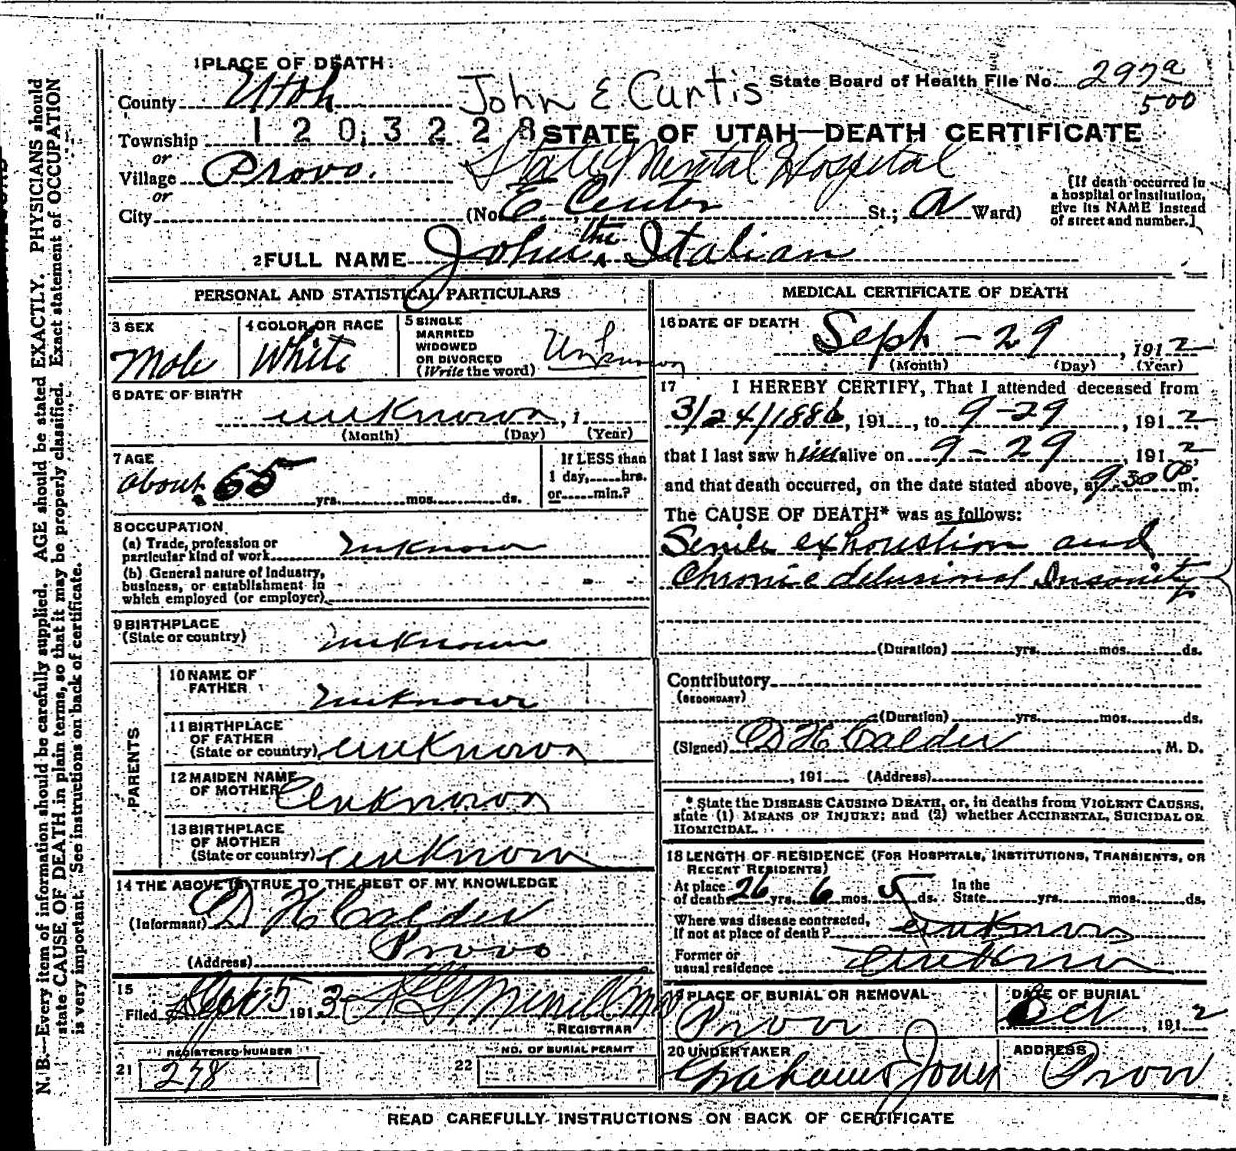 1 PLACE OF DEATH
County Utah
John E Curtis
State Board of Health File No. 297a
500
Township 1 2 0 3 2 2 8
STATE OF UTAH—DEATH CERTIFICATE
or
Village Provo.
State Mental Hospital
or
City (No. E. Center St.; a Ward)
[If death occurred in
a hospital or institution,
give its NAME instead
of street and number.]
2 FULL NAME John the Italian
PERSONAL AND STATISTICAL PARTICULARS
3 SEX
Male
4 COLOR OR RACE
White
5 SINGLE
MARRIED
WIDOWED
OR DIVORCED
(Write the word)
Unknown
6 DATE OF BIRTH
unknown, 1
(Month) (Day) (Year)
7 AGE
about 65 yrs. mos. ds.
If LESS than
1 day, hrs.
or min.?
8 OCCUPATION
(a) Trade, profession or
particular kind of work unknown
(b) General nature of industry,
business, or establishment in
which employed (or employer)
9 BIRTHPLACE
(State or country) unknown
PARENTS
10 NAME OF
FATHER unknown
11 BIRTHPLACE
OF FATHER
(State or country) unknown
12 MAIDEN NAME
OF MOTHER unknown
13 BIRTHPLACE
OF MOTHER
(State or country) unknown
14 THE ABOVE IS TRUE TO THE BEST OF MY KNOWLEDGE
(Informant) D H Calder
(Address) Provo
15
Filed Sept 5 191 3
REGISTRAR
REGISTERED NUMBER
21 278
NO. OF BURIAL PERMIT
22
MEDICAL CERTIFICATE OF DEATH
16 DATE OF DEATH
Sept - 29, 1912
(Month) (Day) (Year)
17 I HEREBY CERTIFY, That I attended deceased from
3/24/1886, 191, to 9-29, 1912
that I last saw him alive on 9-29, 1912
and that death occurred, on the date stated above, at 9 30 P. m.
The CAUSE OF DEATH* was as follows:
Senile exhoustion and
Chronic delusional Insanity
(Duration) yrs. mos. ds.
Contributory
(SECONDARY)
(Duration) yrs. mos. ds.
(Signed) D H Calder, M. D.
, 191 (Address)
* State the DISEASE CAUSING DEATH, or, in deaths from VIOLENT CAUSES,
state (1) MEANS OF INJURY; and (2) whether ACCIDENTAL, SUICIDAL OR
HOMICIDAL.
18 LENGTH OF RESIDENCE (FOR HOSPITALS, INSTITUTIONS, TRANSIENTS, OR
RECENT RESIDENTS)
At place
of death 26 yrs. 6 mos. 5 ds.
In the
State yrs. mos. ds.
Where was disease contracted,
If not at place of death? unknown
Former or
usual residence unknown
19 PLACE OF BURIAL OR REMOVAL
Provo
DATE OF BURIAL
Oct, 1912
20 UNDERTAKER
Graham & Jones
ADDRESS
Provo
READ CAREFULLY INSTRUCTIONS ON BACK OF CERTIFICATE
N. B.—Every item of information should be carefully supplied. AGE should be stated EXACTLY. PHYSICIANS should
state CAUSE OF DEATH in plain terms, so that it may be properly classified. Exact statement of OCCUPATION
is very important. See instructions on back of certificate.